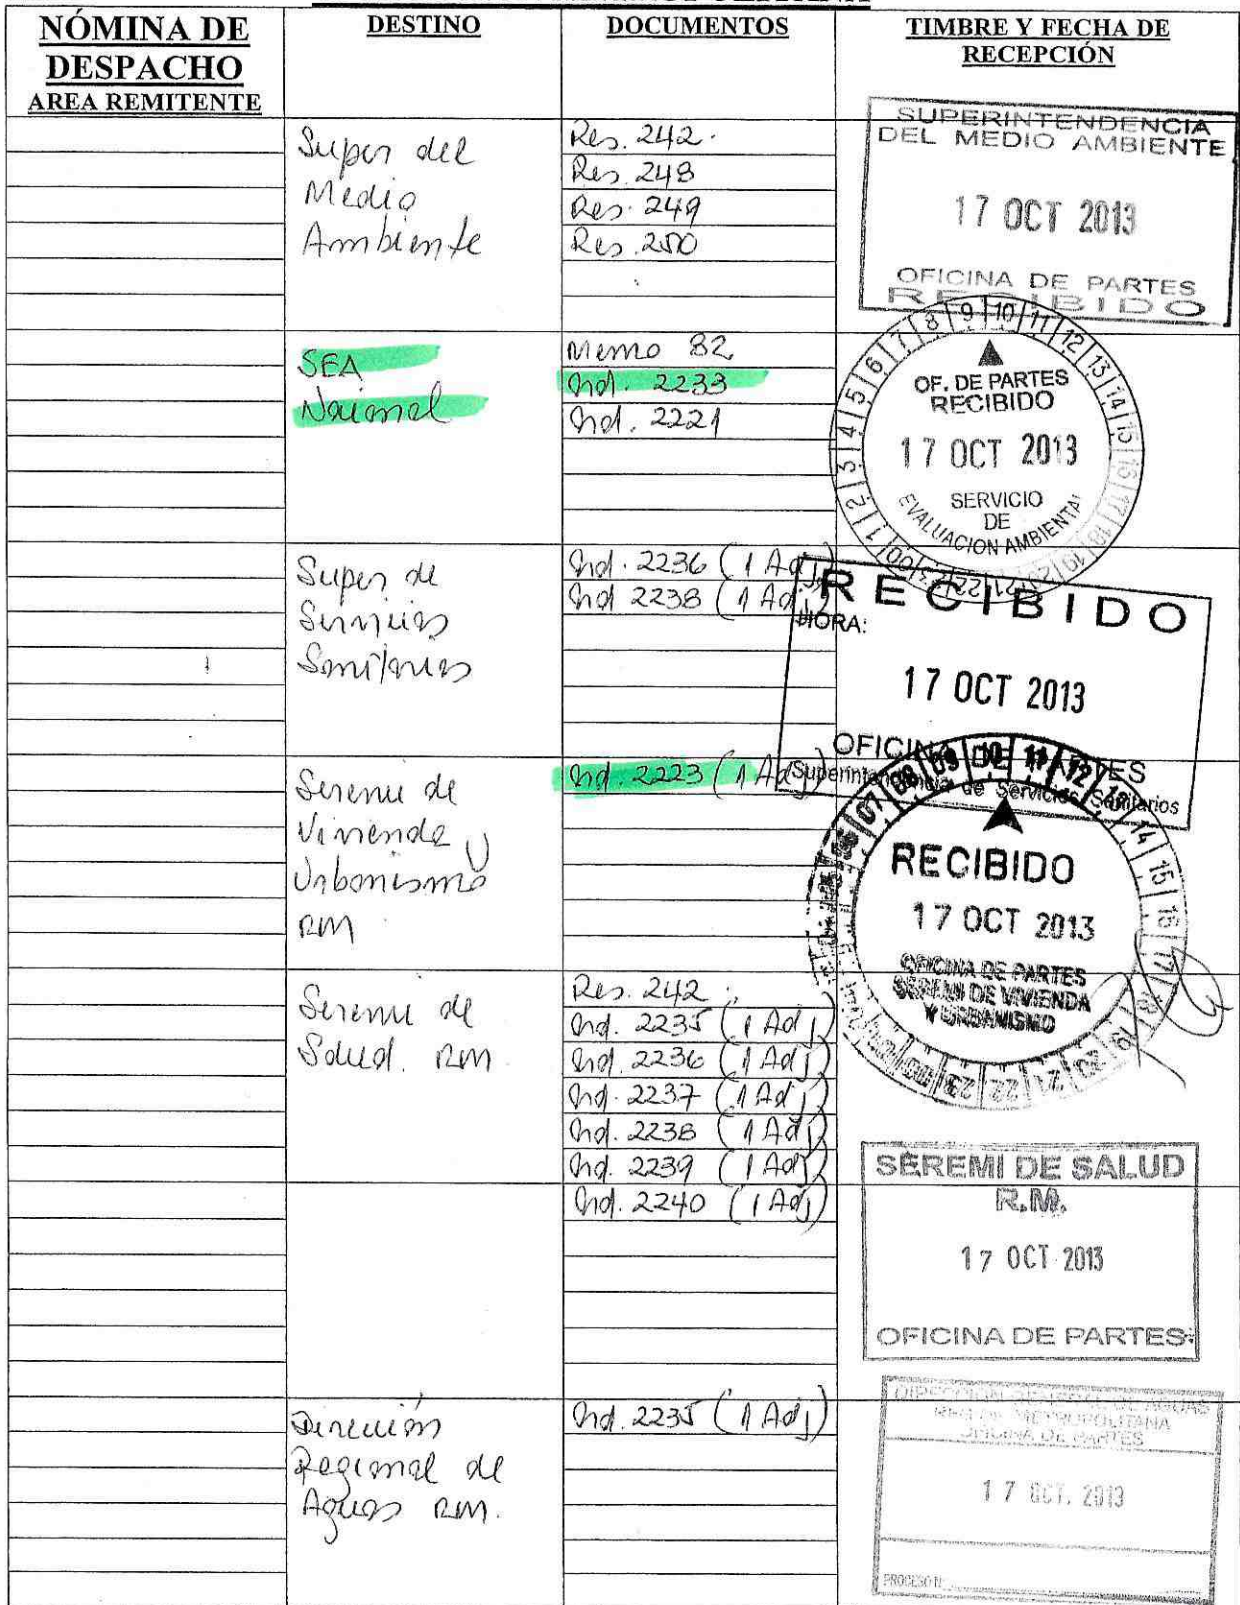 NÓMINA DE
DESPACHO
AREA REMITENTE
DESTINO
DOCUMENTOS
TIMBRE Y FECHA DE
RECEPCIÓN
Super del
Medio
Ambiente
Res. 242.
Res. 248
Res. 249
Res. 250
SUPERINTENDENCIA
DEL MEDIO AMBIENTE
17 OCT 2013
OFICINA DE PARTES
RECIBIDO
SEA
Nacional
Memo 82
Ord. 2233
Ord. 2221
OF. DE PARTES
RECIBIDO
17 OCT 2013
SERVICIO
DE
EVALUACION AMBIENTAL
Super de
Servicios
Sanitarios
Ord. 2236 (1 Adj)
Ord 2238 (1 Adj)
RECIBIDO
HORA:
17 OCT 2013
OFICINA DE PARTES
Superintendencia de Servicios Sanitarios
Seremi de
Vivienda y
Urbanismo
RM
Ord. 2223 (1 Adj)
RECIBIDO
17 OCT 2013
OFICINA DE PARTES
SEREMI DE VIVIENDA
Y URBANISMO
Seremi de
Salud. RM
Res. 242
Ord. 2235 (1 Adj)
Ord. 2236 (1 Adj)
Ord. 2237 (1 Adj)
Ord. 2238 (1 Adj)
Ord. 2239 (1 Adj)
Ord. 2240 (1 Adj)
SEREMI DE SALUD
R.M.
17 OCT 2013
OFICINA DE PARTES
Dirección
Regional de
Aguas RM.
Ord. 2235 (1 Adj)
DIRECCION GENERAL DE AGUAS
REGION METROPOLITANA
OFICINA DE PARTES
17 OCT. 2013
PROCESO N